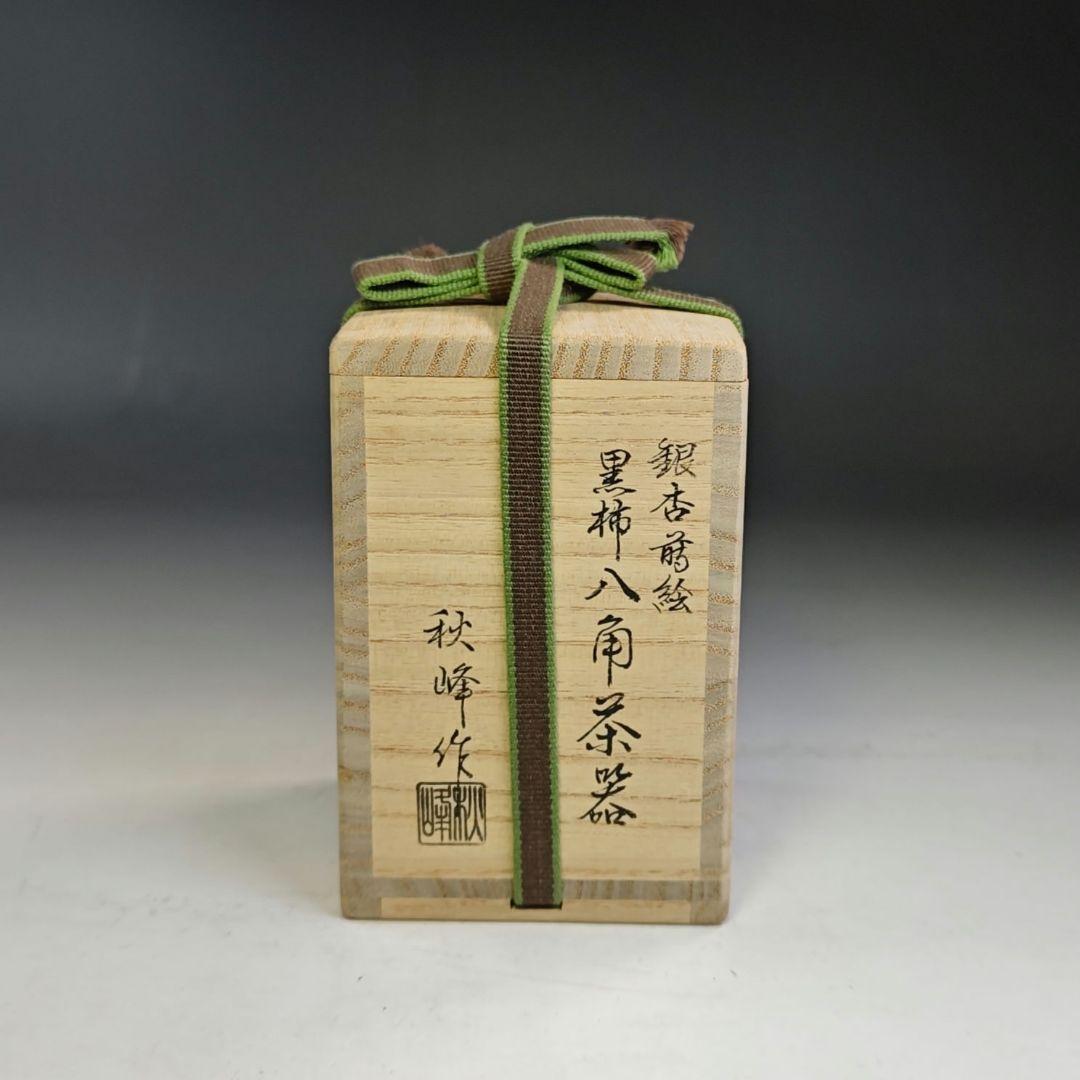 銀杏蒔絵
黒柿八角茶器
秋峰作
秋峰